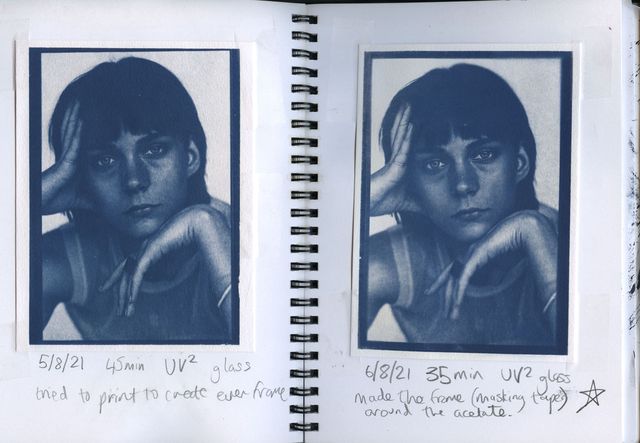 5/8/21 45min UV² glass
tried to print to create even frame
6/8/21 35min UV² glass
made the frame (masking tape)
around the acetate.